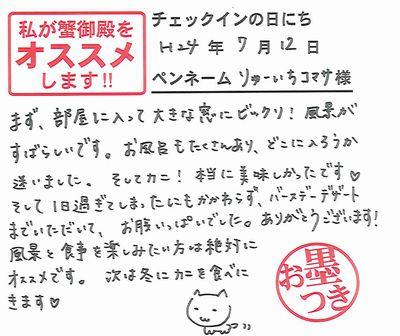 私が蟹御殿を
オススメ
します!!
チェックインの日にち
H24年 7月12日
ペンネーム りゅーいちコマサ様
まず、部屋に入って大きな窓にビックリ! 風景が
すばらしいです。お風呂もたくさんあり、どこに入ろうか
迷いました。そしてカニ! 本当に美味しかったです♡
そして1日過ぎてしまったにもかかわらず、バースデーデザート
までいただいて、お腹いっぱいでした。ありがとうございます!
風景と食事を楽しみたい方は絶対に
オススメです。次は冬にカニを食べに
きます♡
お墨つき